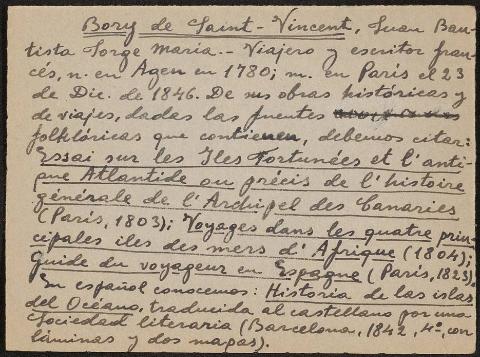 Bory de Saint-Vincent, Juan Bau-
tista Jorge María.- Viajero y escritor fran-
cés, n. en Agen en 1780; m. en París el 23
de Dic. de 1846. De sus obras históricas y
de viajes, dadas las fuentes
folklóricas que contienen, debemos citar:
Essai sur les Iles Fortunées et l'anti-
que Atlantide ou précis de l'histoire
générale de l'Archipel des Canaries
(París, 1803); Voyages dans les quatre prin-
cipales iles des mers d'Afrique (1804);
Guide du voyageur en Espagne (París, 1823).
En español conocemos: Historia de las islas
del Océano, traducida al castellano por una
Sociedad literaria (Barcelona, 1842, 4º, con
láminas y dos mapas).